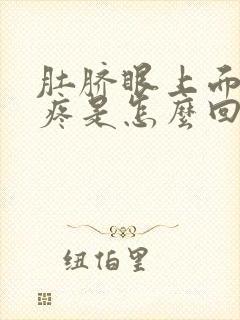 肚脐眼上面
疼是怎麼回
纽伯里